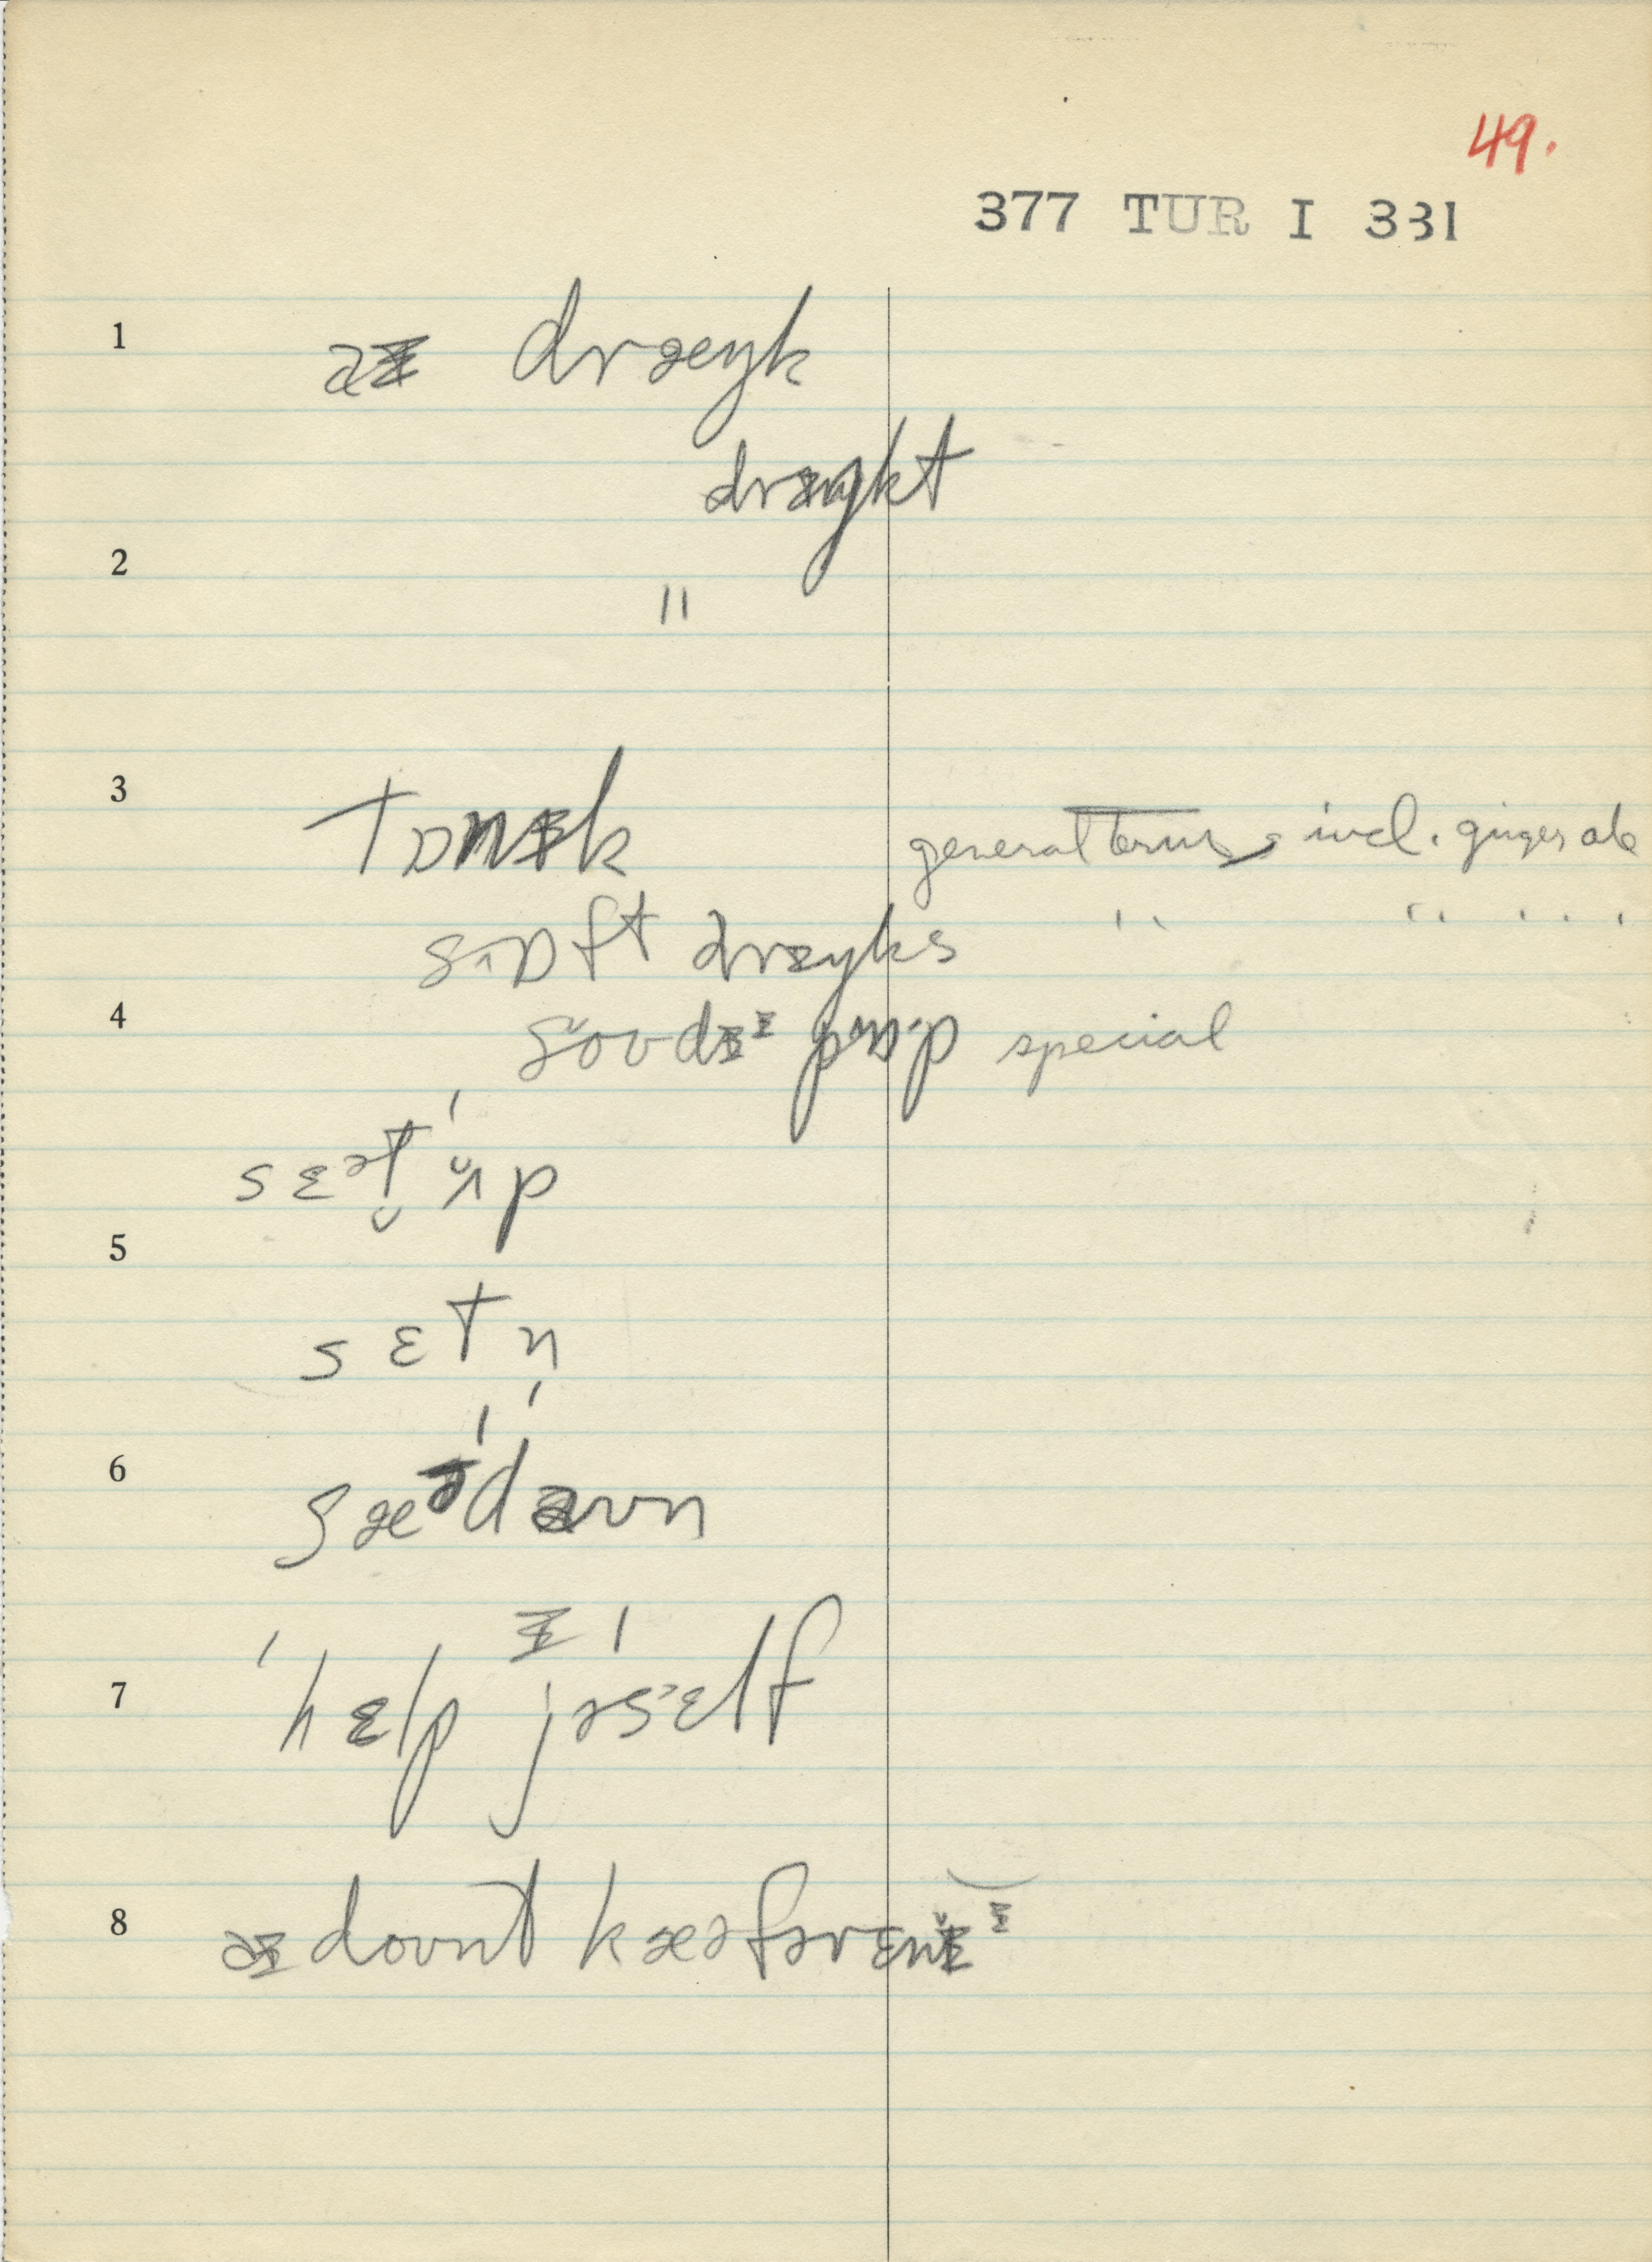 49.
377 TUR I 331
1 aɪ dræŋk
dræŋkt
2
"
3 tɒnɪk general term, incl. ginger ale
sɒft dræŋks " " " "
4 soʊdə pɒp special
sɛᵊt ʌp
5
sɛt n
6 sæᵊt daʊn
7 hɛlp jəsɛlf
8 aɪ doʊnt kæəfərɛnɪ